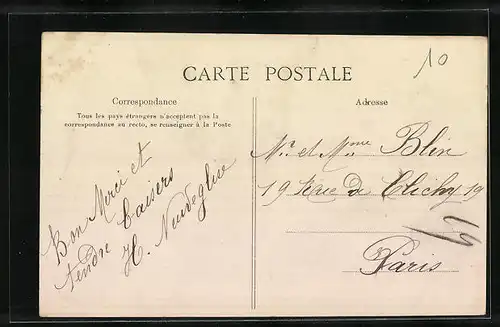 10
CARTE POSTALE
Correspondance
Tous les pays étrangers n'acceptent pas la
correspondance au recto, se renseigner à la Poste
Bon Merci et
tendre baisers
H.
Adresse
Mr. et Mme Blin
19 Rue de Clichy 19
Paris